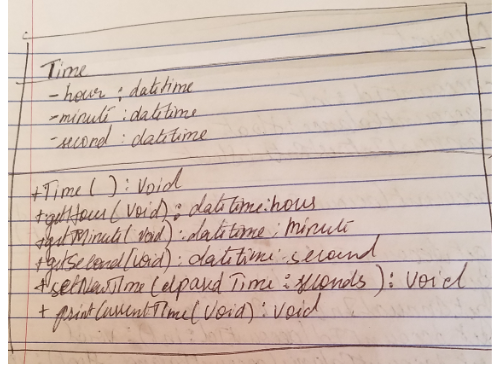 Time
- hour : datetime
- minute : datetime
- second : datetime
+ Time ( ) : Void
+ getHour ( void ) : datetime : hour
+ getMinute ( void ) : datetime : minute
+ getSecond ( void ) : datetime : second
+ setNewTime ( elapsed Time : seconds ) : Void
+ printCurrentTime ( void ) : void